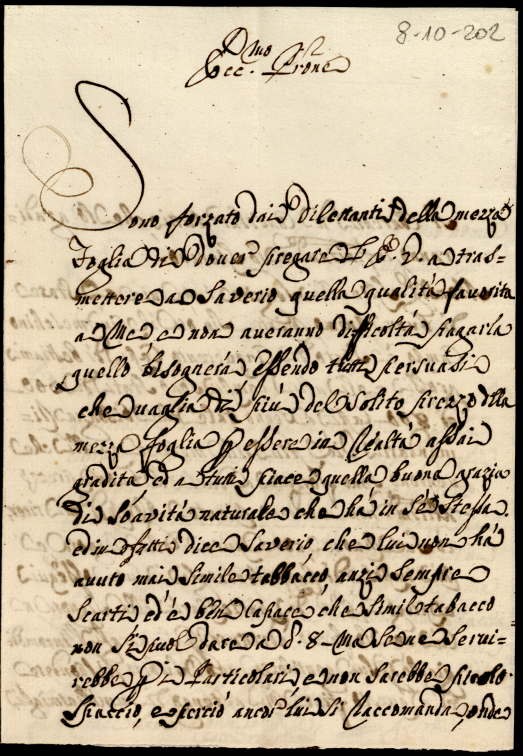 8-10-202
Ill.mo
Ecc. Prone
Sono forzato dai dilettanti della mezza
foglia di dover pregare V. E. a tras=
mettere a Saverio quella qualità favorita
a Me, e non averanno difficoltà pagarla
quello bisognerà essendo tutti persuasi
che vaglia di più del solito prezzo della
mezza foglia p essere in Realtà assai
gradita ed a tutti piace quella buona grazia
di Soavità naturale che hà in Sè Stessa,
ed in fatti dice Saverio che lui non hà
avuto mai simile tabbacco, anzi sempre
Scarti, ed è ben Capace che simil tabacco
non si può dare a d. 8 - Ma Se ne Servi-
rebbe p i Particolari e non sarebbe piccolo
Spaccio, e perciò ancor lui si Raccomanda, onde